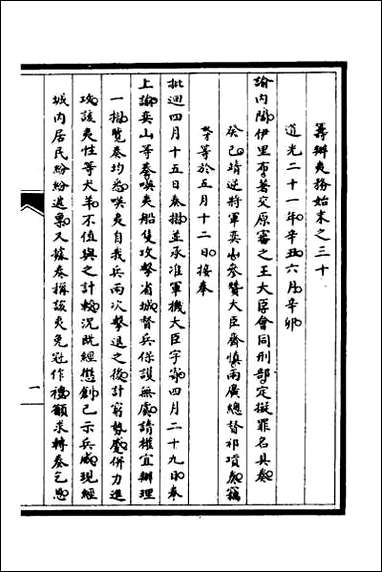 籌辦夷務始末卷之三十
道光二十一年辛丑六月辛卯
諭內閣伊里布著交原審之王大臣會同刑部定擬罪名具奏
癸巳靖逆將軍奕山參贊大臣齊慎兩廣總督祁𡎴奏竊
奴才等於五月十二日接奉
批迴四月十五日奏摺並承准軍機大臣字寄四月二十九日奉
上諭奕山等奏嘆夷船隻攻擊省城督兵保護無虞請權宜辦理
一摺覽奏均悉嘆夷自我兵兩次擊退之後計窮勢蹙併力進
攻該夷性等犬羊不值與之計較況既經懲創已示兵威現經
城內居民紛紛遞稟又據奏稱該夷免冠作禮籲求轉奏乞恩
一